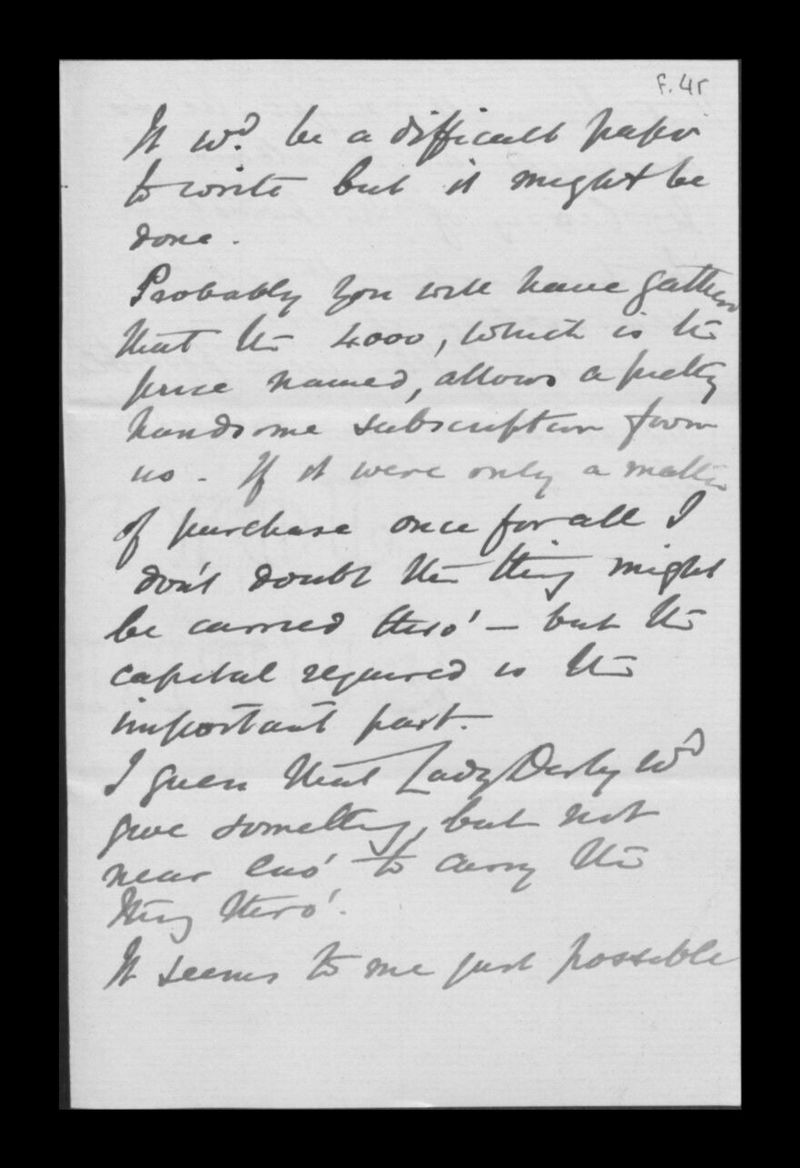 F. 45
It wd. be a difficult paper
to write but it might be
done.
Probably you will have gathered
that the 4000, which is the
price named, allows a pretty
handsome subscription from
us. If it were only a matter
of purchase once for all I
don't doubt the thing might
be carried thro' – but the
capital required is the
important part.
I guess that Lady Derby wd
give something, but not
near eno' to carry the
thing thro'.
It seems to me just possible